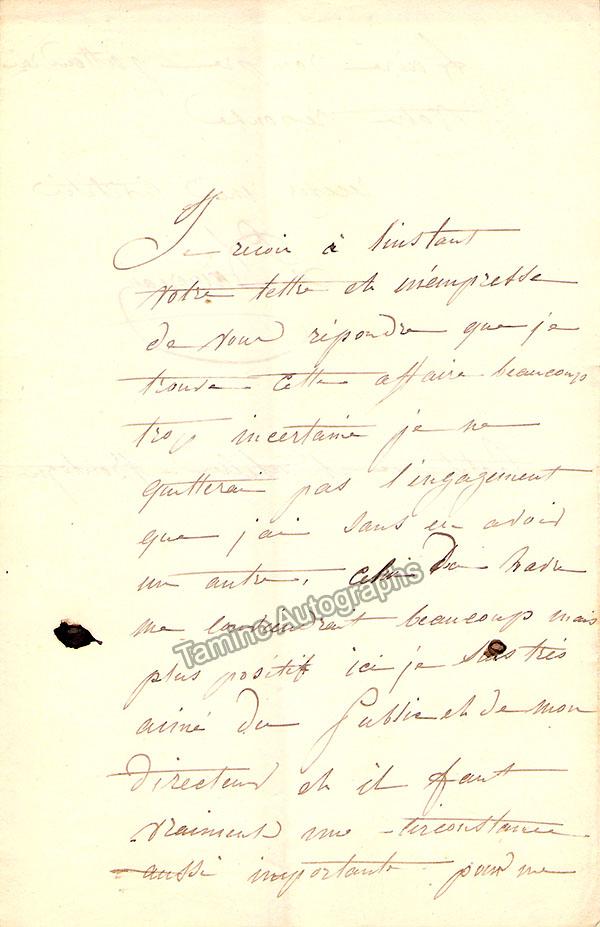 Je recoir à l'instant
votre lettre et m'empresse
de vous répondre que je
trouve cette affaire beaucoup
trop incertaine je ne
quitterai pas l'engagement
que j'ai sans en avoir
un autre, celui du havre
me conviendrait beaucoup mais
plus positif ici je suis très
aimé du Public et de mon
directeur et il faut
vraiment une circonstance
aussi importante pour me
Tamino Autographs